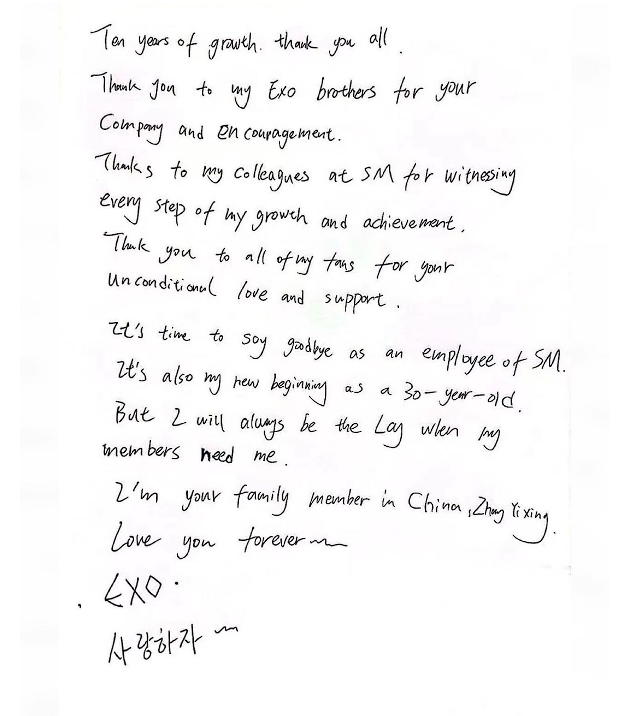 Ten years of growth. thank you all.
Thank you to my Exo brothers for your
Company and encouragement.
Thanks to my colleagues at SM for witnessing
every step of my growth and achievement.
Thank you to all of my fans for your
unconditional love and support.
It's time to say goodbye as an employee of SM.
It's also my new beginning as a 30-year-old.
But I will always be the Lay when my
members need me.
I'm your family member in China, Zhang Yixing.
Love you forever~
EXO.
사랑하자 ~